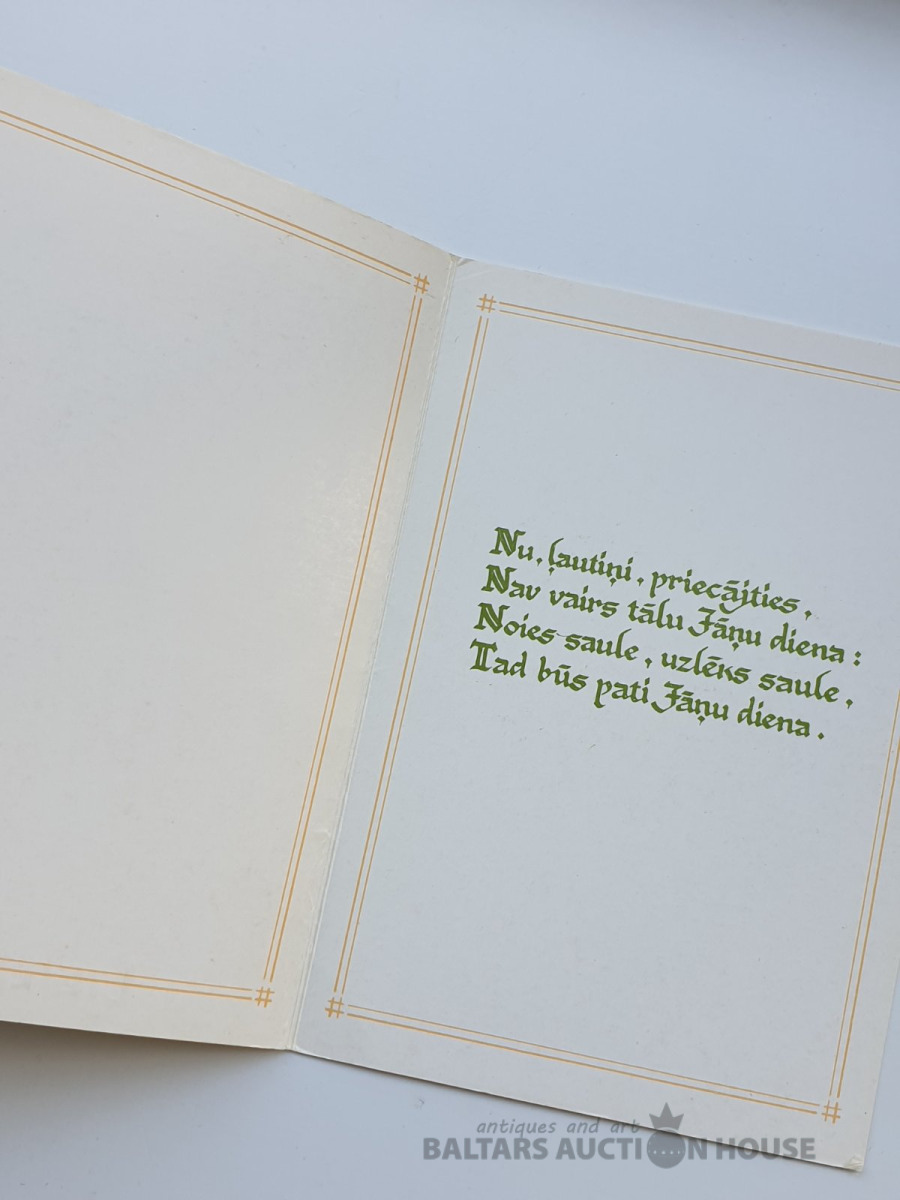 Nu, ļautiņi, priecājties,
Nav vairs tālu Jāņu diena:
Noies saule, uzlēks saule,
Tad būs pati Jāņu diena.
antiques and art
BALTARS AUCTION HOUSE